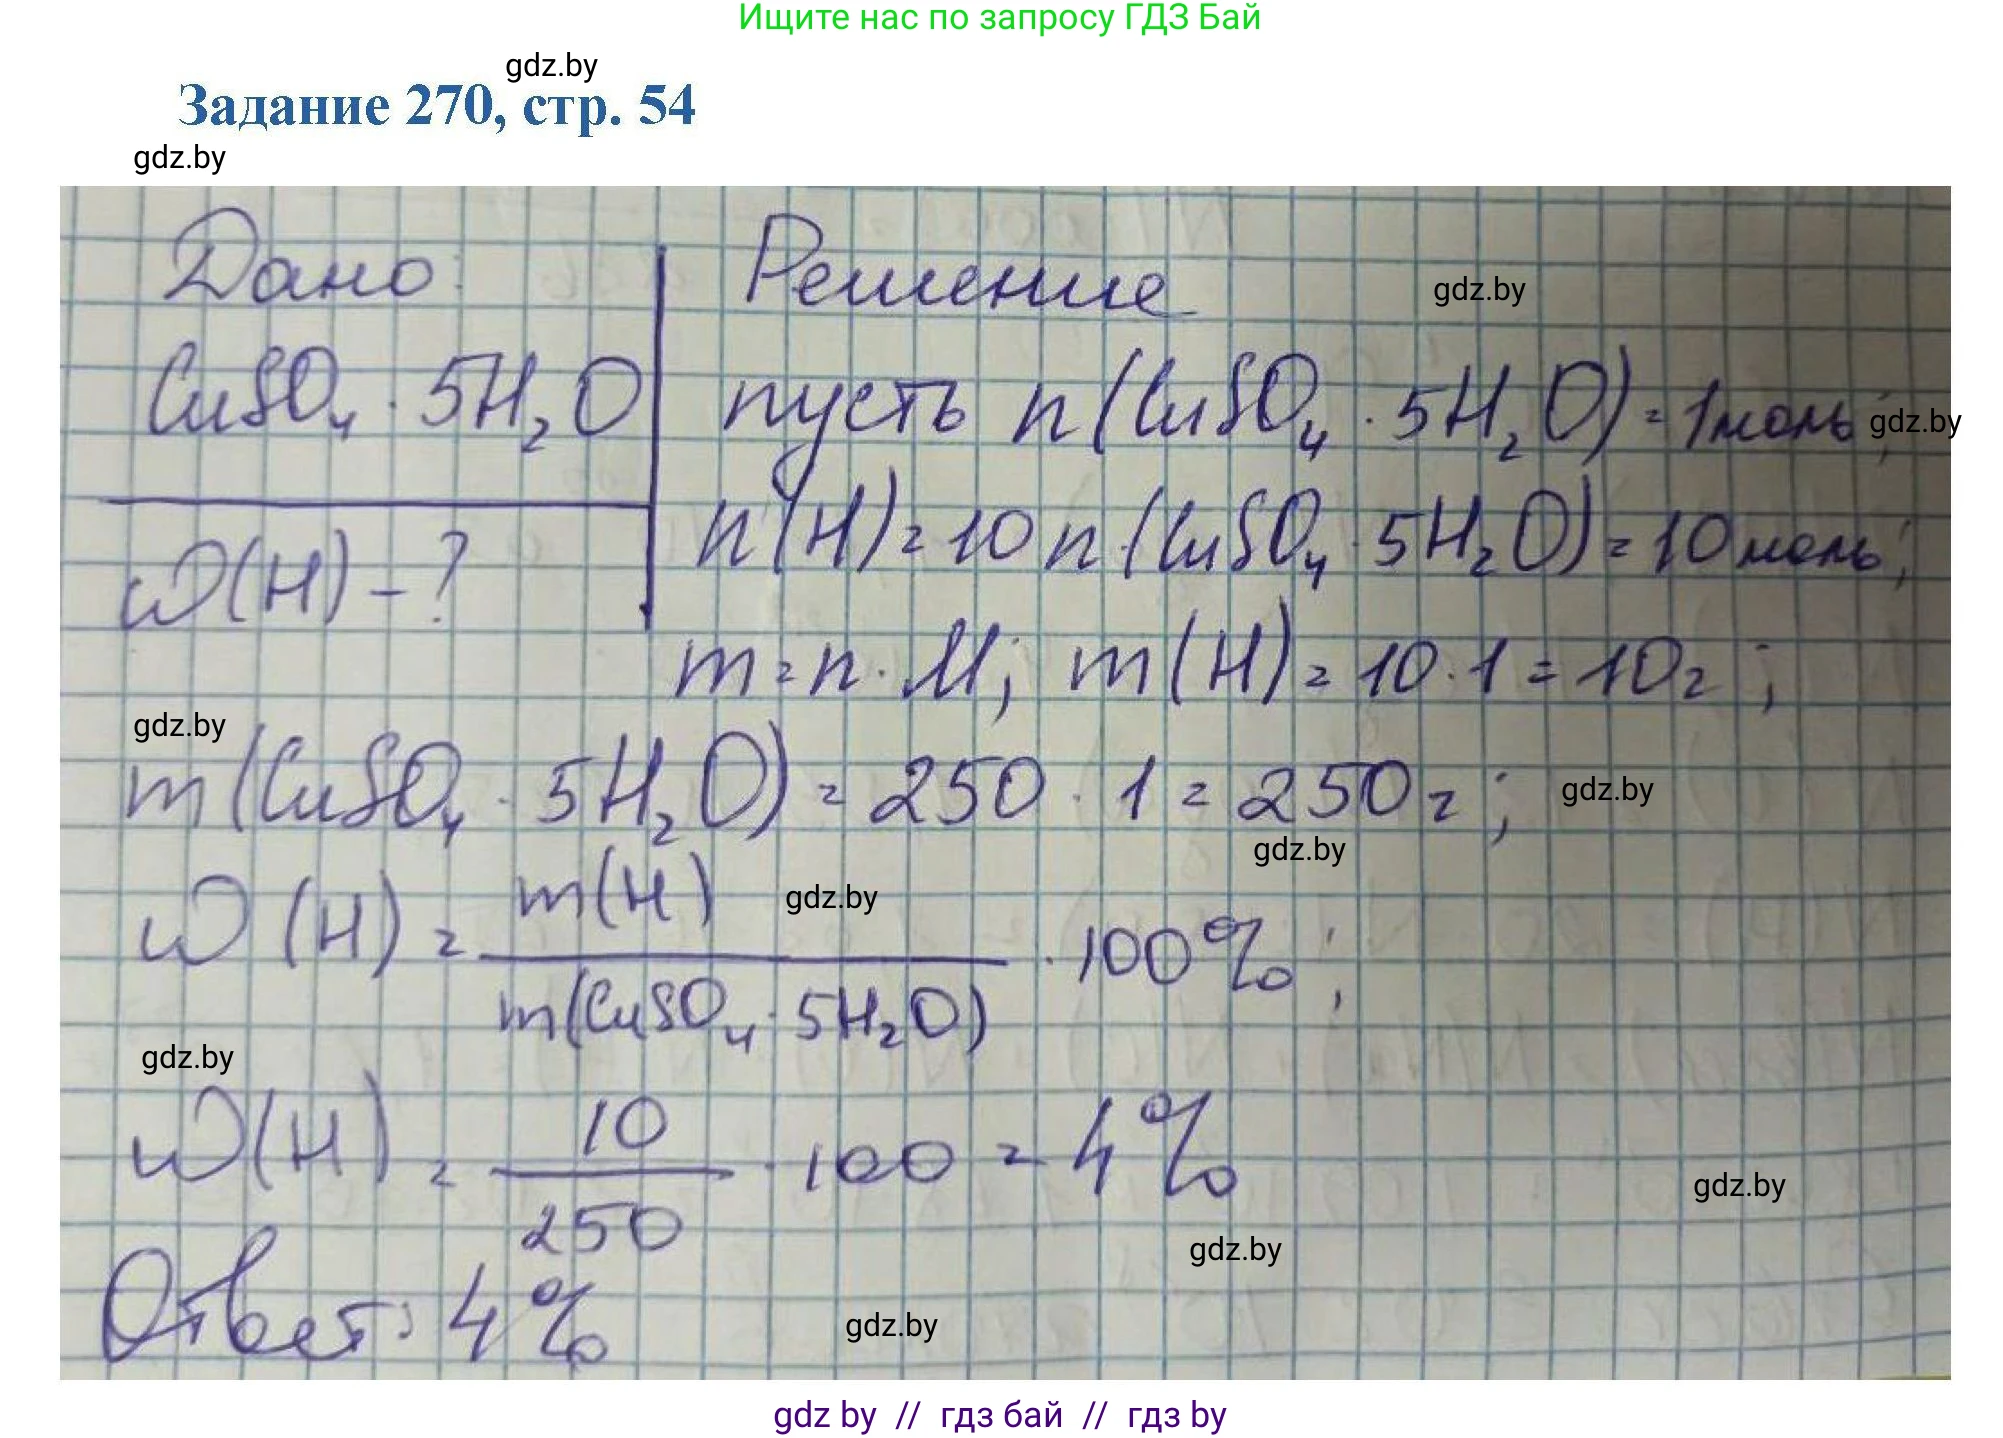 Ищите нас по запросу ГДЗ Бай
gdz.by
Задание 270, стр. 54
gdz.by
Дано: Решение
gdz.by
CuSO₄ · 5H₂O пусть n(CuSO₄ · 5H₂O) = 1 моль;
gdz.by
n(H) = 10 n · (CuSO₄ · 5H₂O) = 10 моль;
ω(H) - ?
m = n · M; m(H) = 10 · 1 = 10 г;
gdz.by
m(CuSO₄ · 5H₂O) = 250 · 1 = 250 г;
gdz.by
gdz.by
ω(H) = m(H) / m(CuSO₄ · 5H₂O) · 100%;
gdz.by
gdz.by
ω(H) = 10 / 250 · 100 = 4%
gdz.by
gdz.by
Ответ: 4%
gdz.by
gdz by // гдз бай // гдз by